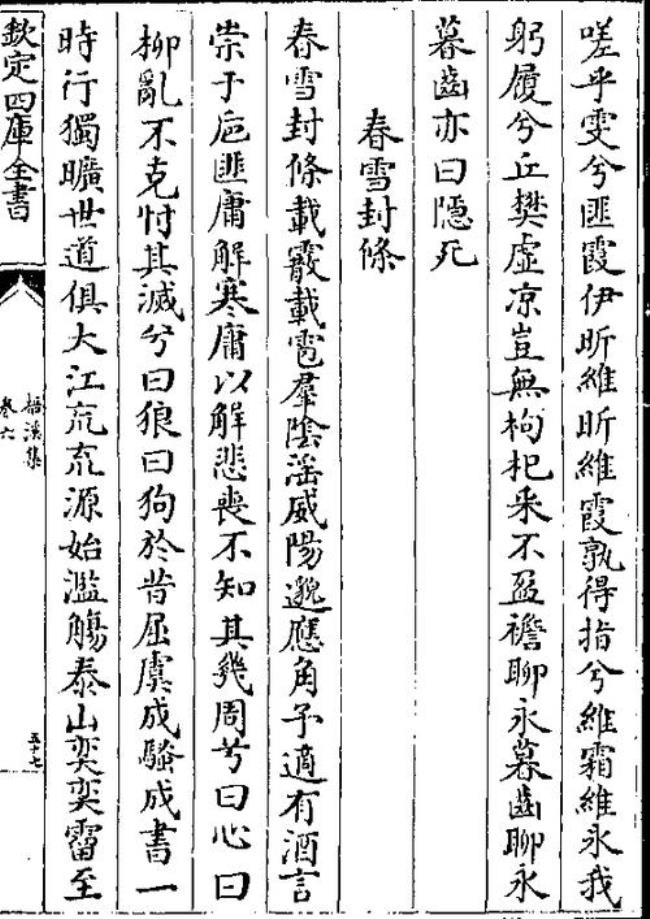 嗟乎雯兮匪霞伊昕維昕維霞孰得指兮維霜維氷我
躬履兮丘樊虛凉豈無枸杞采不盈襜聊永暮齒聊永
暮齒亦曰隠死
春雪封條
春雪封條載霰載雹羣隂滛威陽邈應角予適有酒言
崇于巵匪庸解寒庸以解悲喪不知其幾周兮曰心曰
柳亂不克忖其滅兮曰狼曰狗於昔屈虞成騷成書一
時行獨曠世道俱大江㐬㐬源始濫觴泰山奕奕霤至
欽定四庫全書
梧溪集
卷六
五十七